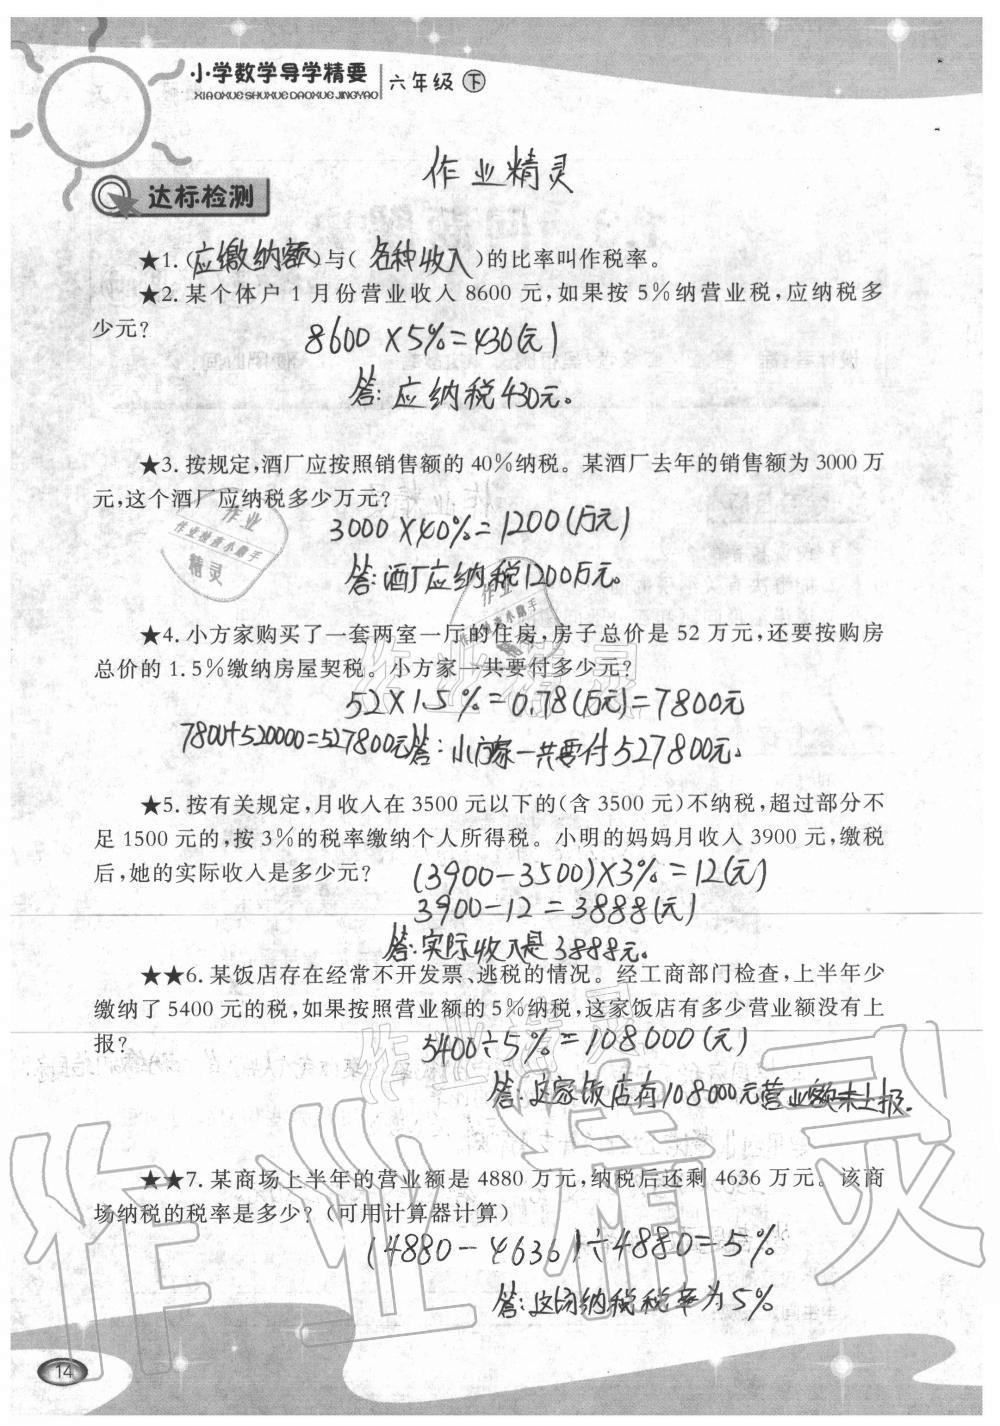 小学数学导学精要
XIAOXUESHUXUEDAOXUEJINGYAO
六年级 下
作业精灵
达标检测
★1.(应缴纳额)与(各种收入)的比率叫作税率。
★2.某个体户1月份营业收入8600元,如果按5%纳营业税,应纳税多
少元?
8600×5%=430(元)
答:应纳税430元。
★3.按规定,酒厂应按照销售额的40%纳税。某酒厂去年的销售额为3000万
元,这个酒厂应纳税多少万元?
3000×40%=1200(万元)
答:酒厂应纳税1200万元。
★4.小方家购买了一套两室一厅的住房,房子总价是52万元,还要按购房
总价的1.5%缴纳房屋契税。小方家一共要付多少元?
52×1.5%=0.78(万元)=7800元
7800+520000=527800元
答:小方家一共要付527800元。
★5.按有关规定,月收入在3500元以下的(含3500元)不纳税,超过部分不
足1500元的,按3%的税率缴纳个人所得税。小明的妈妈月收入3900元,缴税
后,她的实际收入是多少元?
(3900-3500)×3%=12(元)
3900-12=3888(元)
答:实际收入是3888元。
★★6.某饭店存在经常不开发票、逃税的情况。经工商部门检查,上半年少
缴纳了5400元的税,如果按照营业额的5%纳税,这家饭店有多少营业额没有上
报?
5400÷5%=108000(元)
答:这家饭店有108000元营业额未上报.
★★7.某商场上半年的营业额是4880万元,纳税后还剩4636万元。该商
场纳税的税率是多少?(可用计算器计算)
(4880-4636)÷4880=5%
答:这场纳税税率为5%
14
作业
作业快查小助手
精灵
作业
作业快查小助手
作业精灵
作业精灵
作业精灵